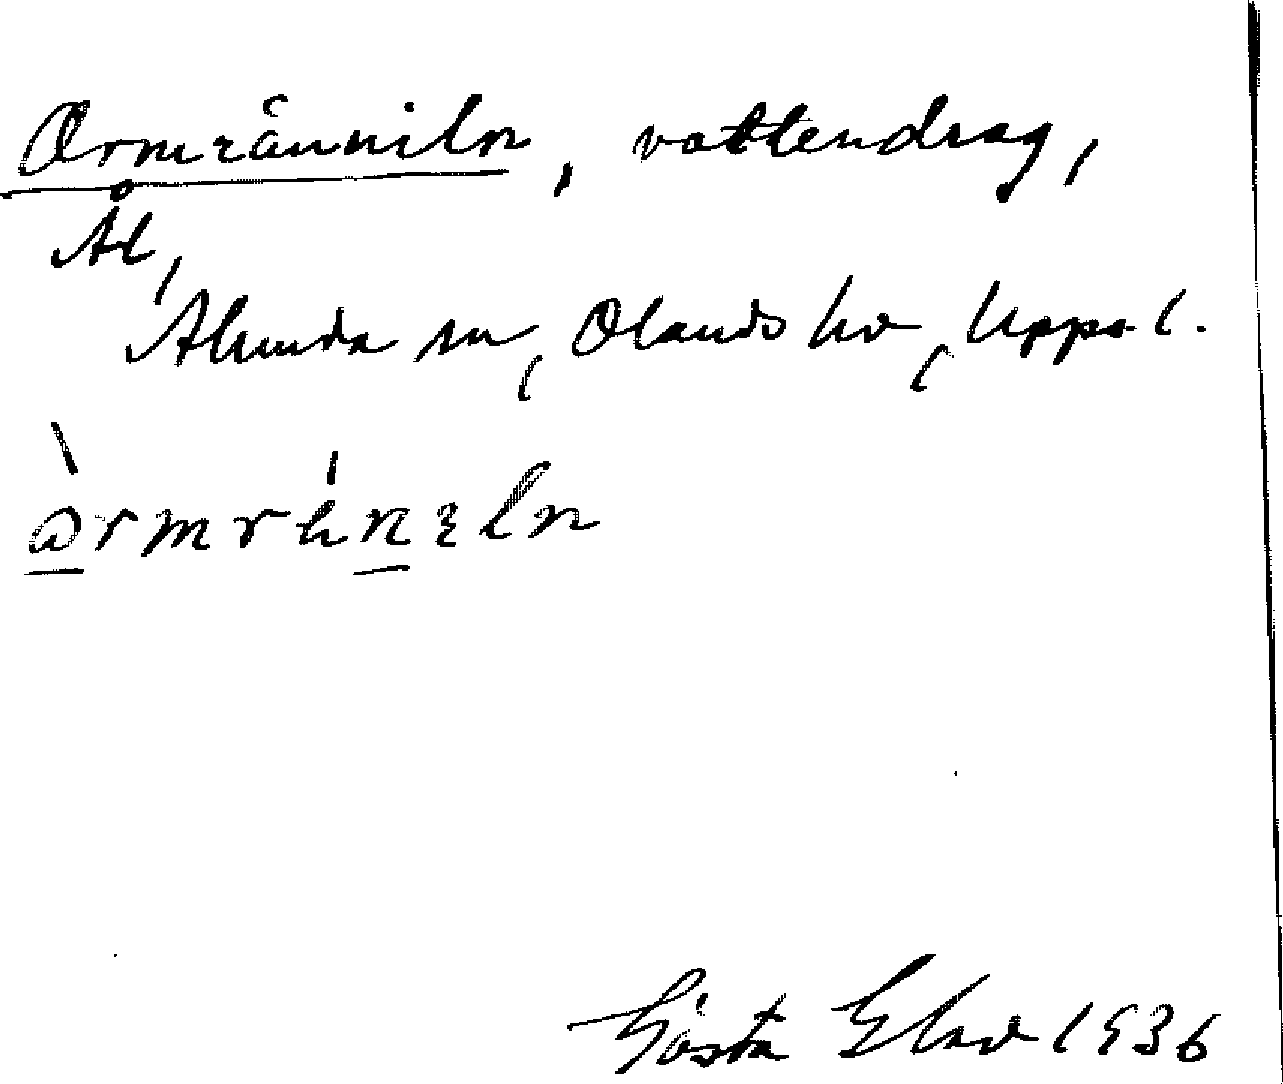 Ormränniln, vattendrag,
Ål,
Alunda sn, Olands hd, Upps. l.
òrmrä́nɛln
Gösta 1936